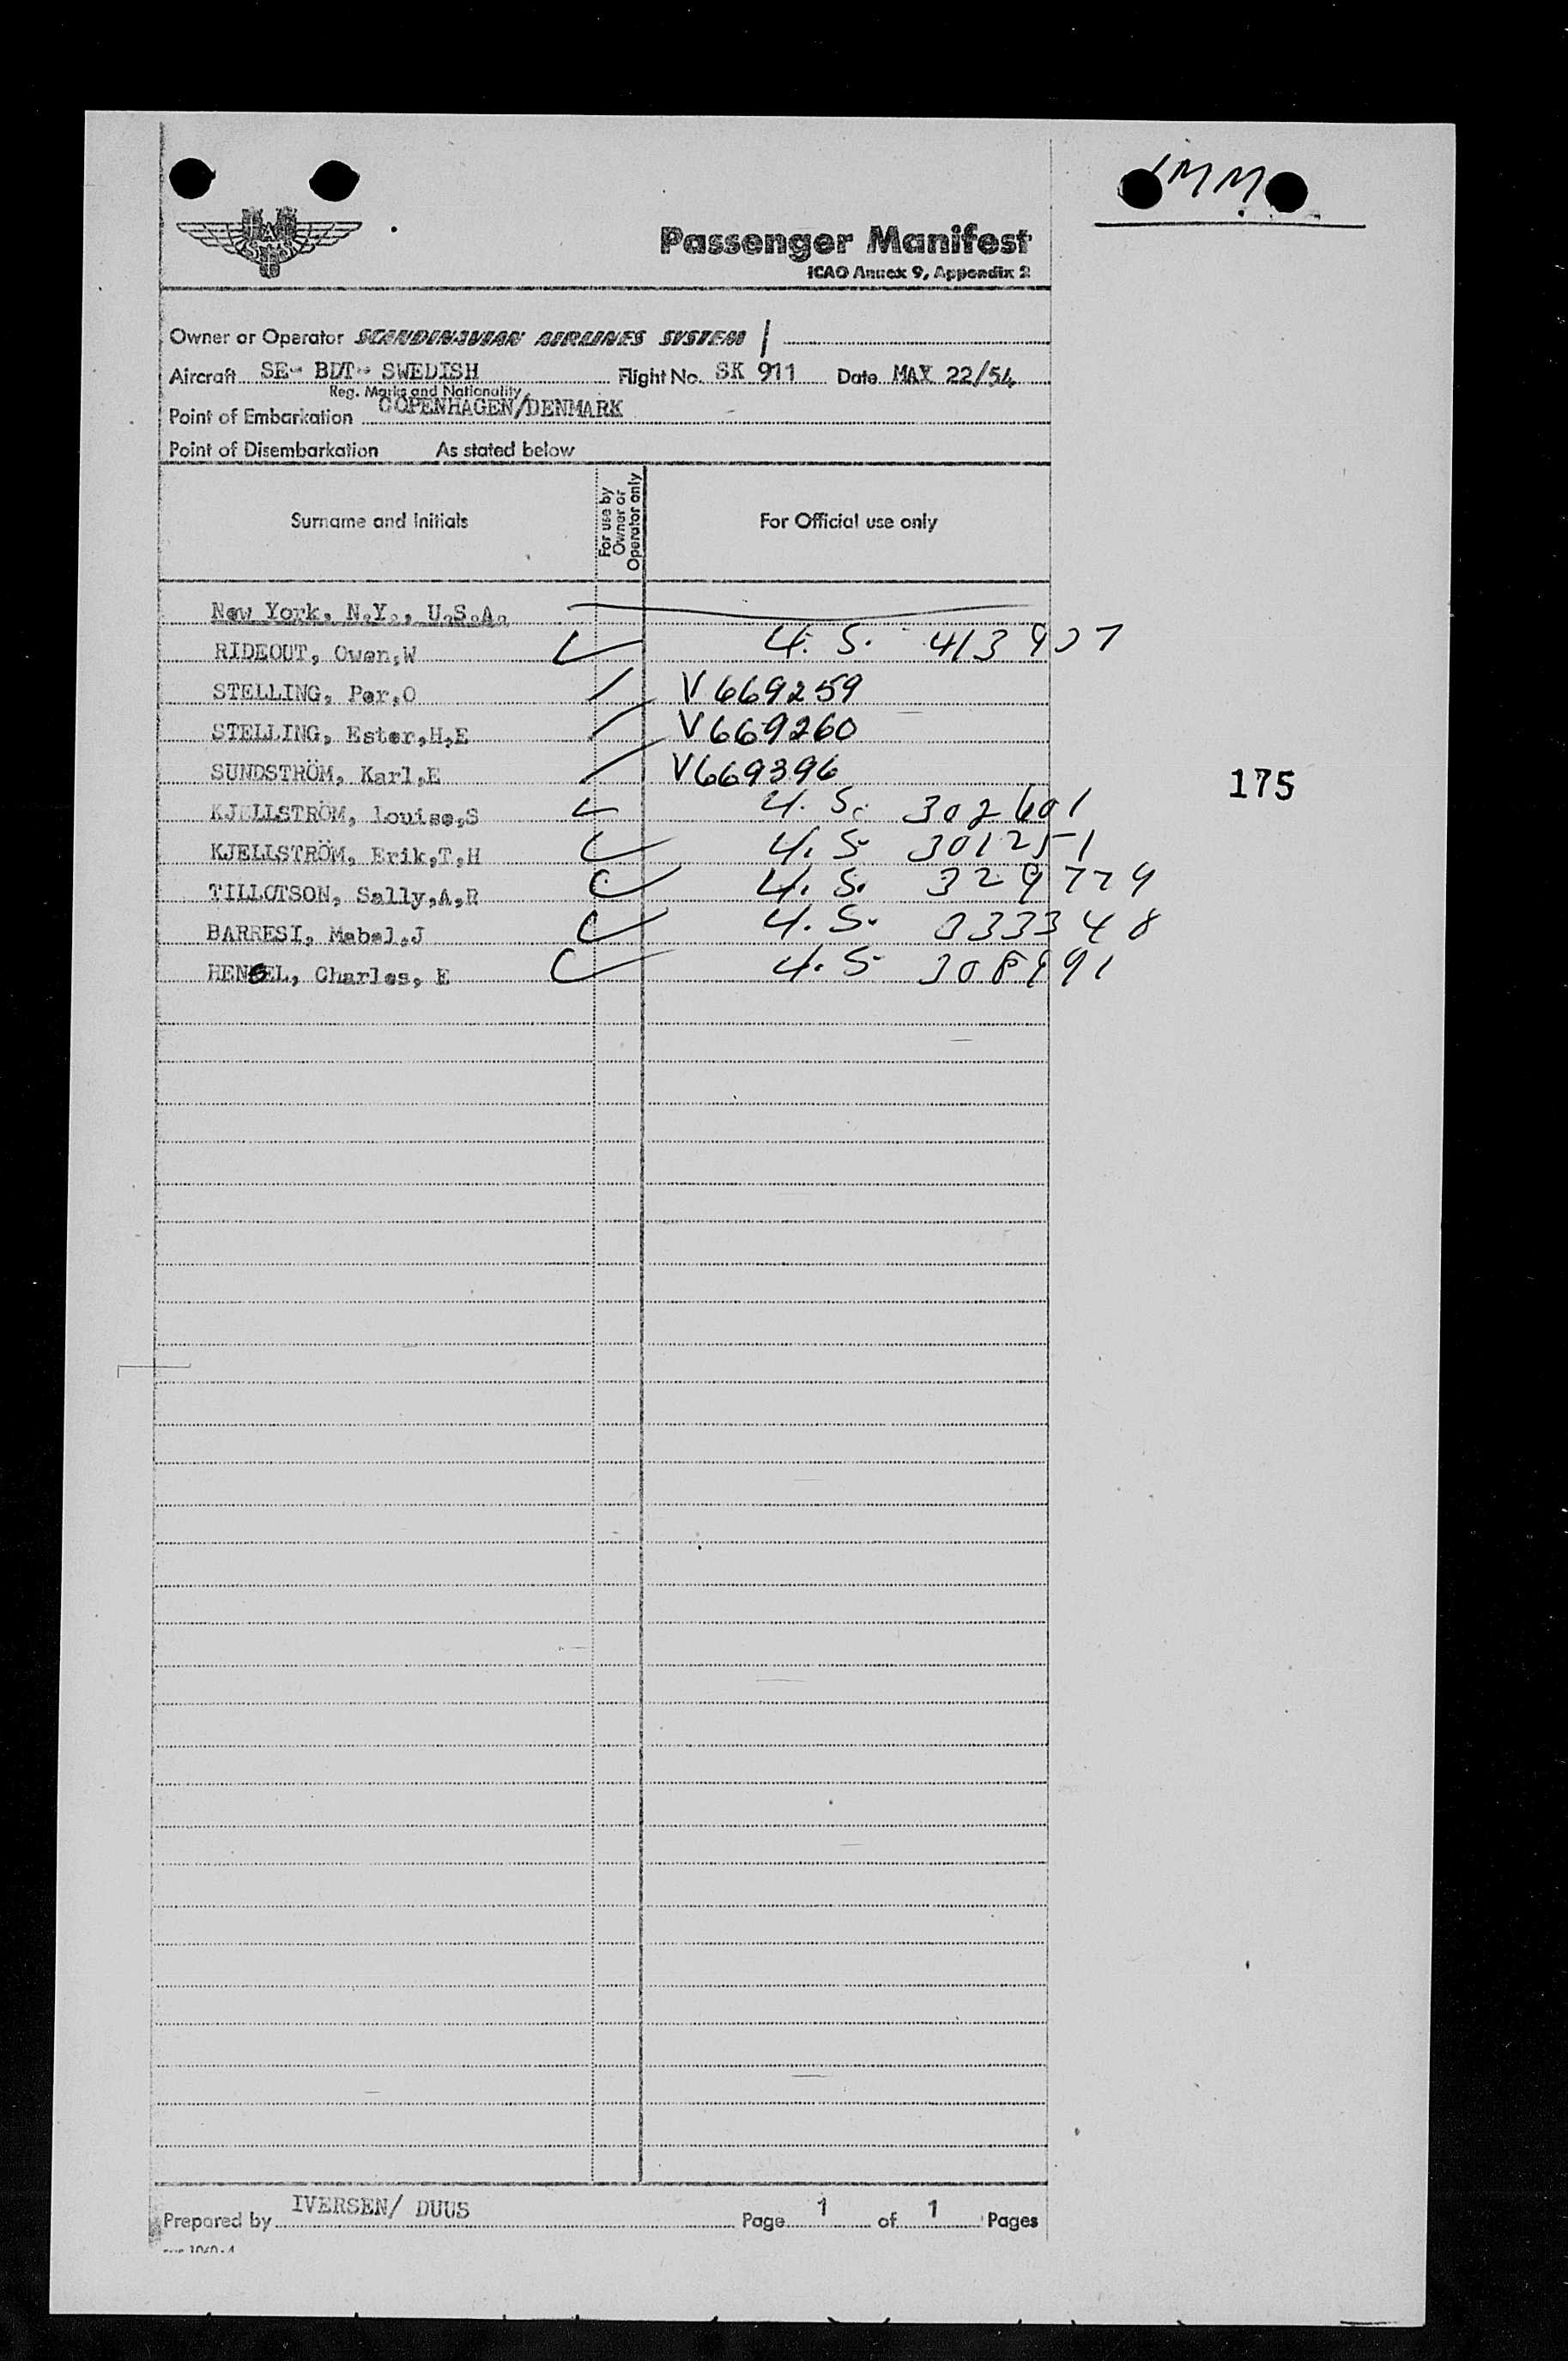 IMM
SAS
Passenger Manifest
ICAO Annex 9, Appendix 2
Owner or Operator SCANDINAVIAN AIRLINES SYSTEM /
Aircraft SE- BDT- SWEDISH Flight No. SK 911 Date MAY 22/54
Reg. Marks and Nationality
Point of Embarkation COPENHAGEN/DENMARK
Point of Disembarkation As stated below
Surname and Initials For use by Owner or Operator only For Official use only
New York, N.Y., U.S.A.
RIDEOUT, Owen,W U.S. 413907
STELLING, Per,O V669259
STELLING, Ester,H,E V669260
SUNDSTRÖM, Karl,E V669396
175
KJELLSTRÖM, Louise,S U.S. 302601
KJELLSTRÖM, Erik,T,H U.S. 301251
TILLOTSON, Sally,A,R U.S. 329779
BARRESI, Mabel,J U.S. 033348
Charles, E U.S.
Prepared by IVERSEN/ DUUS Page 1 of 1 Pages